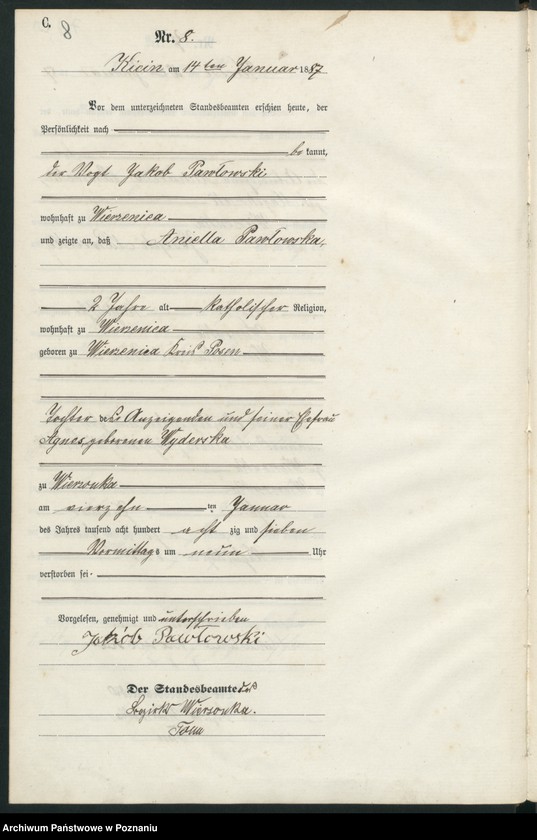 C.
8
Nr. 8.
Kicin am 14ten Januar 1887
Vor dem unterzeichneten Standesbeamten erschien heute, der
Persönlichkeit nach
be kannt,
der Vogt Jakob Pawłowski,
wohnhaft zu Wierzenica
und zeigte an, daß Aniella Pawłowska,
2 Jahre alt katholischer Religion,
wohnhaft zu Wierzenica
geboren zu Wierzenica Kreis Posen
Tochter des Anzeigenden und seiner Ehefrau
Agnes, geborenen Wyderska
zu Wierzonka
am vierzehn ten Januar
des Jahres tausend acht hundert acht zig und sieben
Vormittags um neun Uhr
verstorben sei.
Vorgelesen, genehmigt und unterschrieben
Jakób Pawłowski
Der Standesbeamte des
Bezirks Wierzonka.
Archiwum Państwowe w Poznaniu